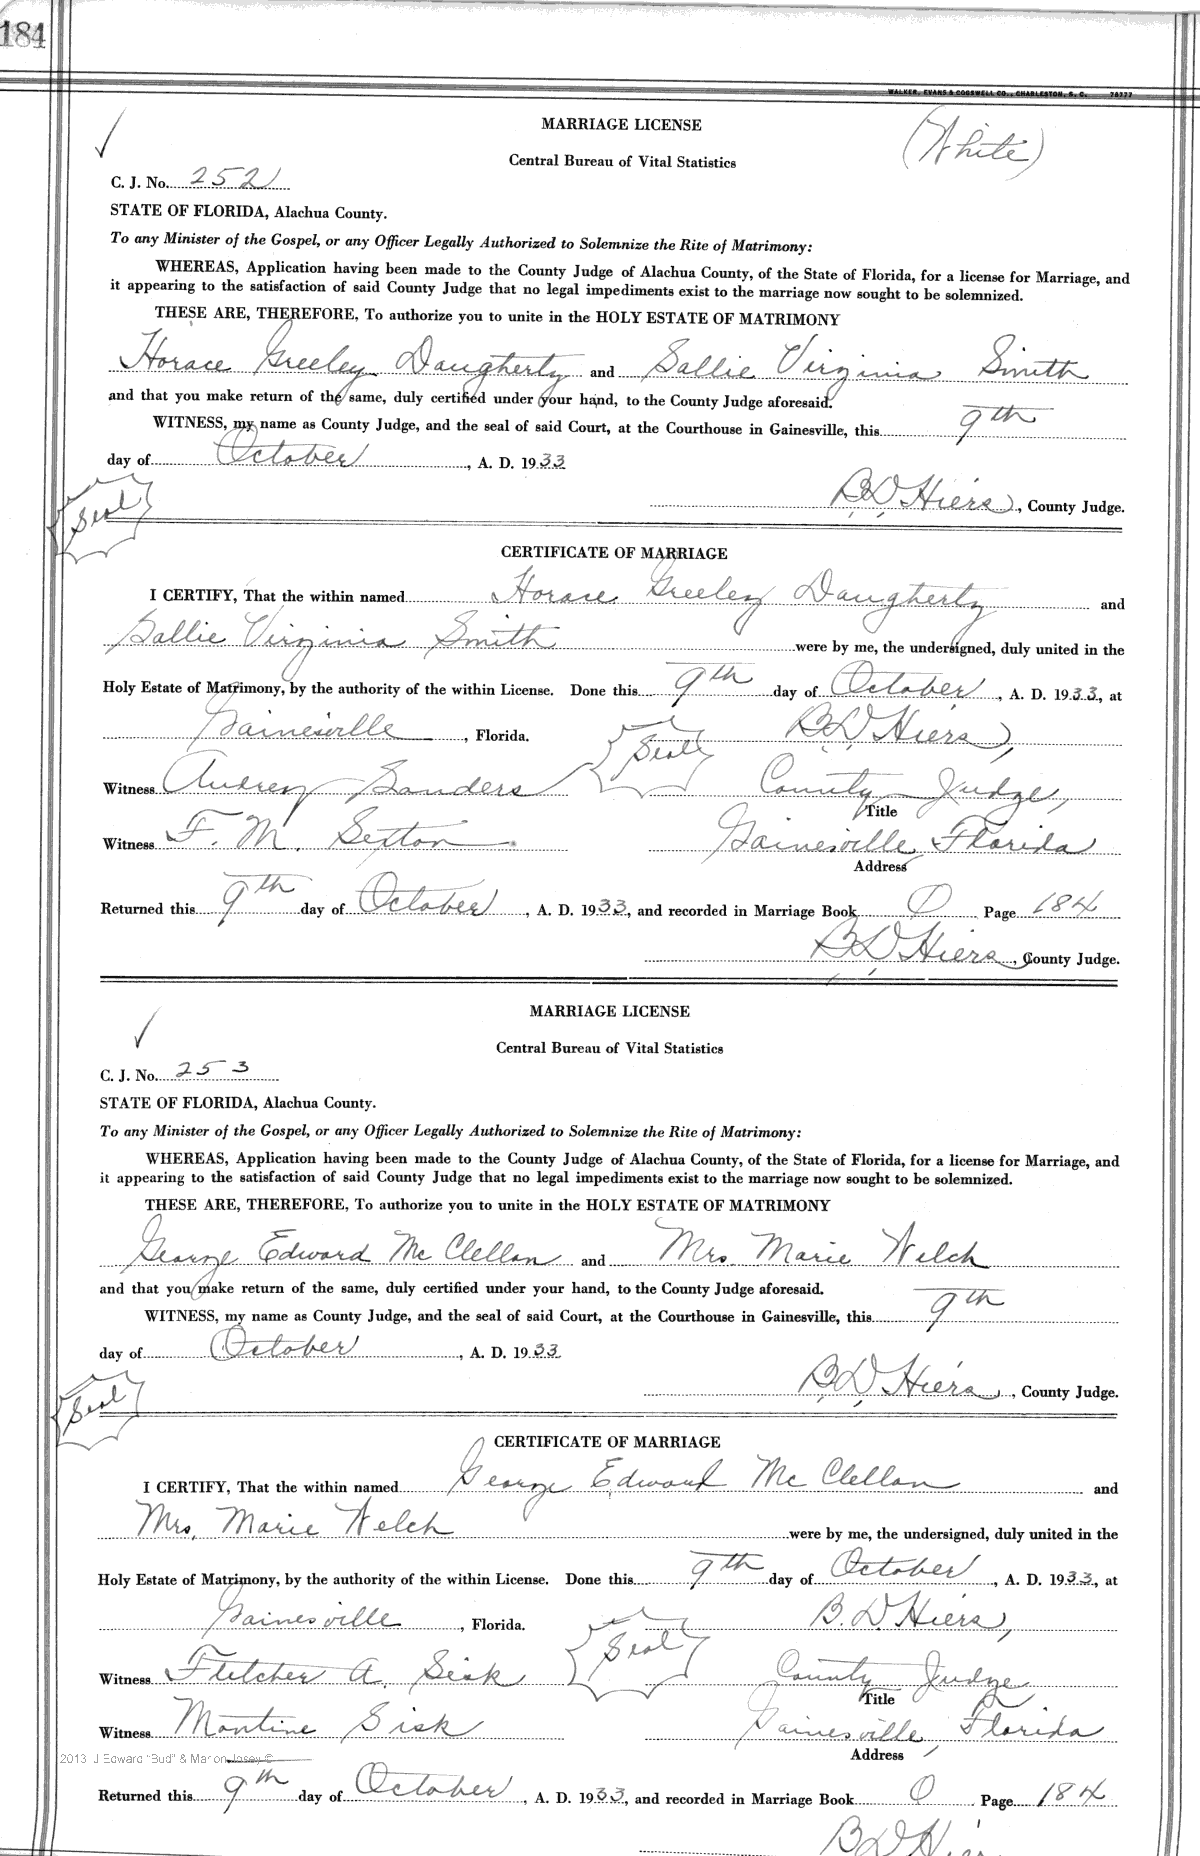 184
WALKER, EVANS & COGSWELL CO., CHARLESTON, S. C. 78777
MARRIAGE LICENSE (White)
Central Bureau of Vital Statistics
C. J. No. 252
STATE OF FLORIDA, Alachua County.
To any Minister of the Gospel, or any Officer Legally Authorized to Solemnize the Rite of Matrimony:
WHEREAS, Application having been made to the County Judge of Alachua County, of the State of Florida, for a license for Marriage, and
it appearing to the satisfaction of said County Judge that no legal impediments exist to the marriage now sought to be solemnized.
THESE ARE, THEREFORE, To authorize you to unite in the HOLY ESTATE OF MATRIMONY
Horace Greeley Daugherty and Sallie Virginia Smith
and that you make return of the same, duly certified under your hand, to the County Judge aforesaid.
WITNESS, my name as County Judge, and the seal of said Court, at the Courthouse in Gainesville, this 9th
day of October, A. D. 1933
Seal B. D. Hiers, County Judge.
CERTIFICATE OF MARRIAGE
I CERTIFY, That the within named Horace Greeley Daugherty and
Sallie Virginia Smith were by me, the undersigned, duly united in the
Holy Estate of Matrimony, by the authority of the within License. Done this 9th day of October, A. D. 1933, at
Gainesville, Florida. Seal B. D. Hiers,
Witness Audrey Sanders County Judge,
Title
Witness F. M. Sexton Gainesville, Florida
Address
Returned this 9th day of October, A. D. 1933, and recorded in Marriage Book O Page 184
B. D. Hiers, County Judge.
MARRIAGE LICENSE
Central Bureau of Vital Statistics
C. J. No. 253
STATE OF FLORIDA, Alachua County.
To any Minister of the Gospel, or any Officer Legally Authorized to Solemnize the Rite of Matrimony:
WHEREAS, Application having been made to the County Judge of Alachua County, of the State of Florida, for a license for Marriage, and
it appearing to the satisfaction of said County Judge that no legal impediments exist to the marriage now sought to be solemnized.
THESE ARE, THEREFORE, To authorize you to unite in the HOLY ESTATE OF MATRIMONY
George Edward McClellan and Mrs. Marie Welch
and that you make return of the same, duly certified under your hand, to the County Judge aforesaid.
WITNESS, my name as County Judge, and the seal of said Court, at the Courthouse in Gainesville, this 9th
day of October, A. D. 1933
Seal B. D. Hiers, County Judge.
CERTIFICATE OF MARRIAGE
I CERTIFY, That the within named George Edward McClellan and
Mrs. Marie Welch were by me, the undersigned, duly united in the
Holy Estate of Matrimony, by the authority of the within License. Done this 9th day of October, A. D. 1933, at
Gainesville, Florida. Seal B. D. Hiers,
Witness Fletcher A. Sisk County Judge
Title
Witness Montine Sisk Gainesville, Florida
2013 J Edward "Bud" & Marion Josey © Address
Returned this 9th day of October, A. D. 1933, and recorded in Marriage Book O Page 184
B D Hiers